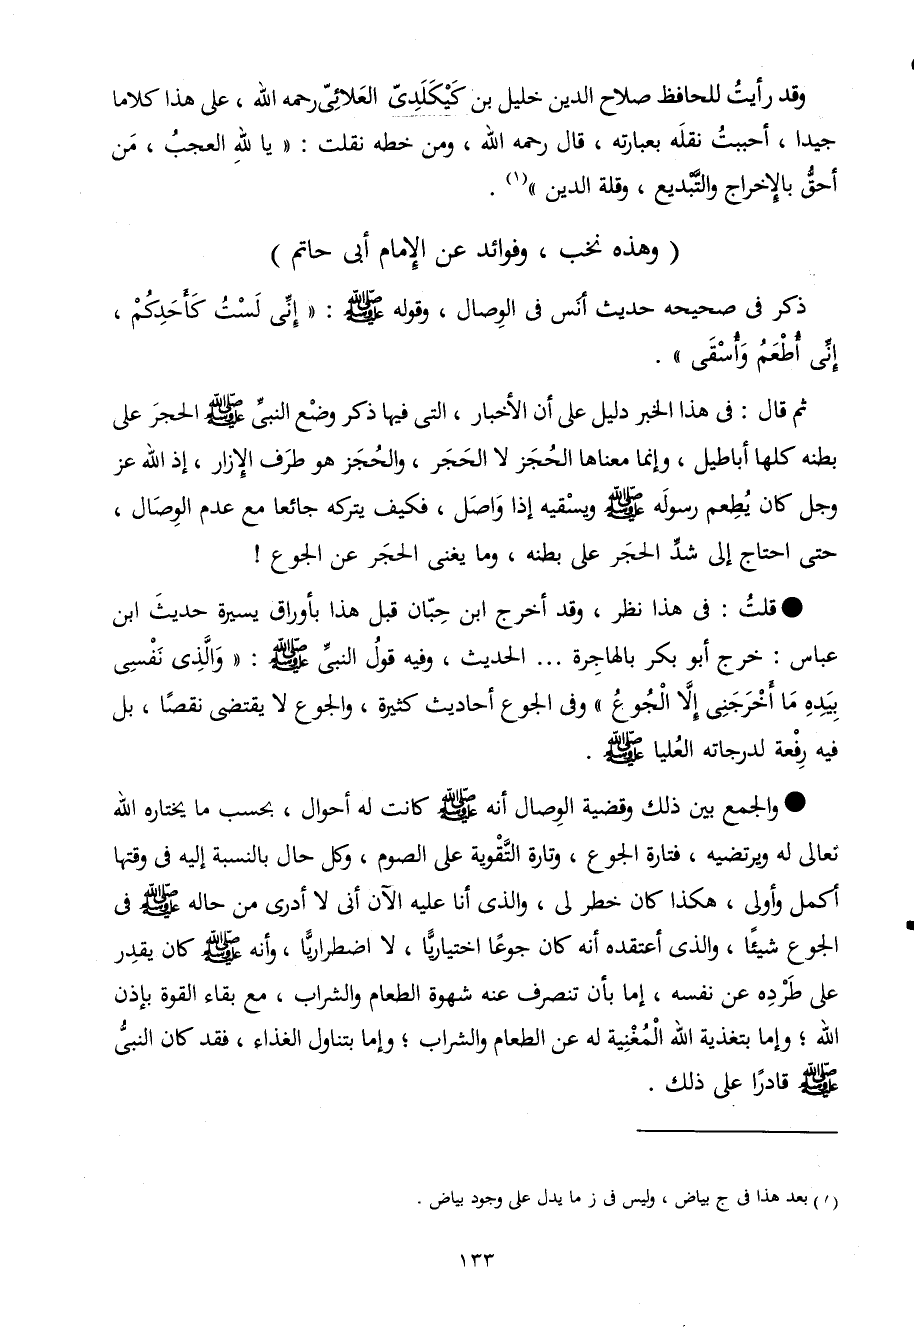 وقد رأيتُ للحافظ صلاح الدين خليل بن كَيْكَلَدِىّ العَلائِىّ رحمه الله ، على هذا كلاما
جيدا ، أحببتُ نقلَه بعبارته ، قال رحمه الله ، ومن خطه نقلت : « يا لَلّٰهِ العجبُ ، مَن
أحقُّ بالإخراج والتَّبْديع ، وقلة الدين »(١) .
( وهذه نخب ، وفوائد عن الإمام أبى حاتم )
ذكر فى صحيحه حديث أنَس فى الوِصال ، وقوله ﷺ : « إِنِّى لَسْتُ كَأَحَدِكُمْ ،
إِنِّى أُطْعَمُ وَأُسْقَى » .
ثم قال : فى هذا الخبر دليل على أن الأخبار ، التى فيها ذكر وضْع النبىِّ ﷺ الحجرَ على
بطنه كلها أباطيل ، وإنما معناها الحُجَز لا الحَجَر ، والحُجَز هو طرَف الإزار ، إذ الله عز
وجل كان يُطِعم رسولَه ﷺ ويسْقيه إذا وَاصَل ، فكيف يتركه جائعا مع عدم الوِصَال ،
حتى احتاج إلى شدِّ الحَجَر على بطنه ، وما يغنى الحجَر عن الجوع !
● قلتُ : فى هذا نظر ، وقد أخرج ابن حِبّان قبل هذا بأوراق يسيرة حديثَ ابن
عباس : خرج أبو بكر بالهاجِرة ... الحديث ، وفيه قولُ النبىِّ ﷺ : « وَالَّذِى نَفْسِى
بِيَدِهِ مَا أَخْرَجَنِى إِلَّا الْجُوعُ » وفى الجوع أحاديث كثيرة ، والجوع لا يقتضى نقصًا ، بل
فيه رِفْعة لدرجاته العُليا ﷺ .
● والجمع بين ذلك وقضية الوِصال أنه ﷺ كانت له أحوال ، بحسب ما يختاره الله
تعالى له ويرتضيه ، فتارة الجوع ، وتارة التَّقْوية على الصوم ، وكل حال بالنسبة إليه فى وقتها
أكمل وأولى ، هكذا كان خطر لى ، والذى أنا عليه الآن أنى لا أدرى من حاله ﷺ فى
الجوع شيئًا ، والذى أعتقده أنه كان جوعًا اختياريًّا ، لا اضطراريًّا ، وأنه ﷺ كان يقدِر
على طَرْدِه عن نفسه ، إما بأن تنصرف عنه شهوة الطعام والشراب ، مع بقاء القوة بإذن
الله ؛ وإما بتغذية الله الْمُغْنِية له عن الطعام والشراب ؛ وإما بتناول الغذاء ، فقد كان النبىُّ
ﷺ قادرًا على ذلك .
(١) بعد هذا فى ج بياض ، وليس فى ز ما يدل على وجود بياض .
١٣٣